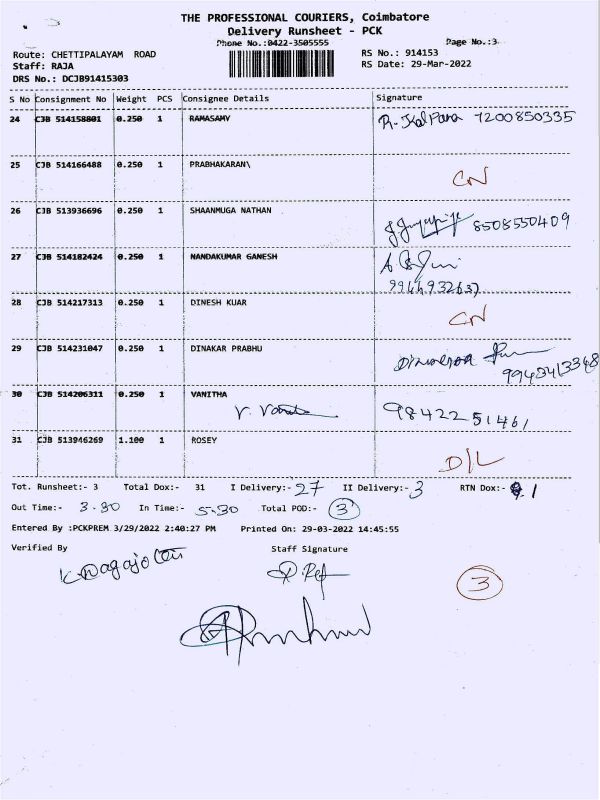 THE PROFESSIONAL COURIERS, Coimbatore
Delivery Runsheet - PCK
Phone No.:0422-3505555 Page No.:3
Route: CHETTIPALAYAM ROAD RS No.: 914153
Staff: RAJA RS Date: 29-Mar-2022
DRS No.: DCJB91415303
S No Consignment No Weight PCS Consignee Details Signature
24 CJB 514158801 0.250 1 RAMASAMY R. Kalpana 7200850335
25 CJB 514166488 0.250 1 PRABHAKARAN\ CN
26 CJB 513936696 0.250 1 SHAANMUGA NATHAN 8508550409
27 CJB 514182424 0.250 1 NANDAKUMAR GANESH
28 CJB 514217313 0.250 1 DINESH KUAR CN
29 CJB 514231047 0.250 1 DINAKAR PRABHU
9942413348
30 CJB 514206311 0.250 1 VANITHA
V. Vanitha 9842251461
31 CJB 513946269 1.100 1 ROSEY D/L
Tot. Runsheet:- 3 Total Dox:- 31 I Delivery:- 27 II Delivery:- 3 RTN Dox:- 1
Out Time:- 3.30 In Time:- 5.30 Total POD:- 3
Entered By :PCKPREM 3/29/2022 2:40:27 PM Printed On: 29-03-2022 14:45:55
Verified By Staff Signature
3